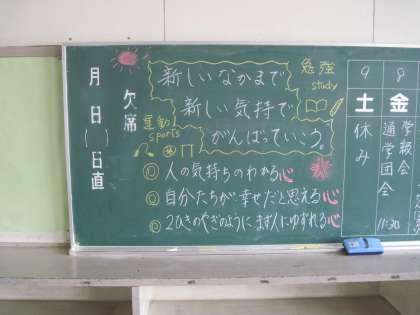 新しいなかまで
新しい気持で
がんばっていこう。
勉強
study
運動
sports
◎人の気持ちのわかる心
◎自分たちが幸せだと思える心
◎2ひきのやぎのように まず人にゆずれる心
月
日
( )
日直
欠席
9
土
休み
8
金
学級会
通学団会
11:30